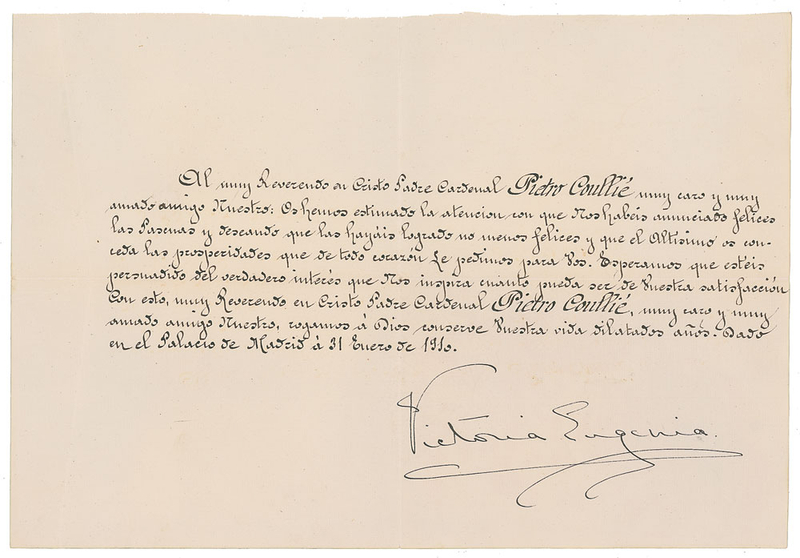 Al muy Reverendo en Cristo Padre Cardenal Pietro Coullié muy caro y muy
amado amigo Nuestro: Os hemos estimado la atencion con que Nos habeis anunciado felices
las Pascuas y deseando que las hayáis logrado no menos felices y que el Altísimo os con-
ceda las prosperidades que de todo corazón Le pedimos para Vos. Esperamos que estéis
persuadido del verdadero interés que Nos inspira cuanto pueda ser de Vuestra satisfacción
Con esto, muy Reverendo en Cristo Padre Cardenal Pietro Coullié, muy caro y muy
amado amigo Nuestro, rogamos á Dios conserve Vuestra vida dilatados años. Dado
en el Palacio de Madrid á 31 Enero de 1910.
Victoria Eugenia.